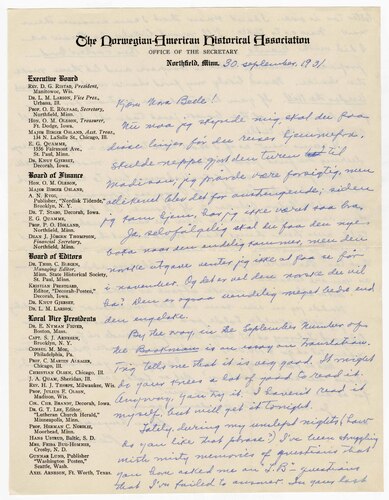 The Norwegian-American Historical Association
OFFICE OF THE SECRETARY
Northfield, Minn. 30 september, 1931.
Executive Board
REV. D. G. RISTAD, President,
Manitowoc, Wis.
DR. L. M. LARSON, Vice Pres.,
Urbana, Ill.
PROF. O. E. RÖLVAAG, Secretary,
Northfield, Minn.
HON. O. M. OLESON, Treasurer,
Ft. Dodge, Iowa.
MAJOR BIRGER OSLAND, Asst. Treas.,
134 N. LaSalle St., Chicago, Ill.
E. G. QUAMME,
1536 Fairmont Ave.,
St. Paul, Minn.
DR. KNUT GJERSET,
Decorah, Iowa.
Board of Finance
HON. O. M. OLESON,
MAJOR BIRGER OSLAND,
A. N. RYGG,
Publisher, "Nordisk Tidende,"
Brooklyn, N. Y.
DR. T. STABO, Decorah, Iowa.
E. G. QUAMME,
PROF. P. O. HOLLAND,
Northfield, Minn.
DEAN J. JÖRGEN THOMPSON,
Financial Secretary,
Northfield, Minn.
Board of Editors
DR. THEO. C. BLEGEN,
Managing Editor,
Minn. State Historical Society,
St. Paul, Minn.
KRISTIAN PRESTGARD,
Editor, "Decorah-Posten,"
Decorah, Iowa.
DR. KNUT GJERSET,
DR. L. M. LARSON.
Local Vice Presidents
DR. E. NYMAN FIGVED,
Boston, Mass.
CAPT. S. J. ARNESEN,
Brooklyn, N. Y.
CONSUL M. MOE,
Philadelphia, Pa.
PROF. C. MARTIN ALSAGER,
Chicago, Ill.
CHRISTIAN OLSEN, Chicago, Ill.
J. A. QUAM, Sheridan, Ill.
REV. H. J. THORPE, Milwaukee, Wis.
PROF. JULIUS E. OLSON,
Madison, Wis.
COL. CHR. BRANDT, Decorah, Iowa.
DR. G. T. LEE, Editor
"Lutheran Church Herald,"
Minneapolis, Minn.
PROF. HERMAN C. NORDLIE,
Moorhead, Minn.
HANS USTRUD, Baltic, S. D.
MRS. FRIDA BUE-HOMNES,
Crosby, N. D.
GUNNAR LUND, Publisher
"Washington Posten,"
Seattle, Wash.
AXEL ARNESON, Ft. Worth, Texas.
Kjære Nora Bodle!
Nu maa jeg skynde mig skal du faa
disse linjer før du reiser hjemmefra.
skulde neppe gjort den turen til
Madison, jeg prøvde være forsigtig, men
allikevel blev det for anstrengende; siden
jeg kom hjem, har jeg ikke været saa bra.
Ja, selvfølgelig skal du faa den nye
boka naar den endelig kommer, men den
norske utgave venter jeg ikke at faa se før
i november. Og det er vel den norske du vil
ha? Den er ogsaa uendelig meget bedre end
den engelske.
By the way, in the September Number of
the Bookman is an essay on Translation.
Trig tells me that it is very good. It might
do your knees a lot of good to read it.
Anyway, you try it. I haven't read it
myself, but will get it tonight.
Lately, during my unslept nights (how
do you like that phrase?) I've been struggling
with misty memories of questions that
you have asked me on I.B. – questions
that I've failed to answer. In your last